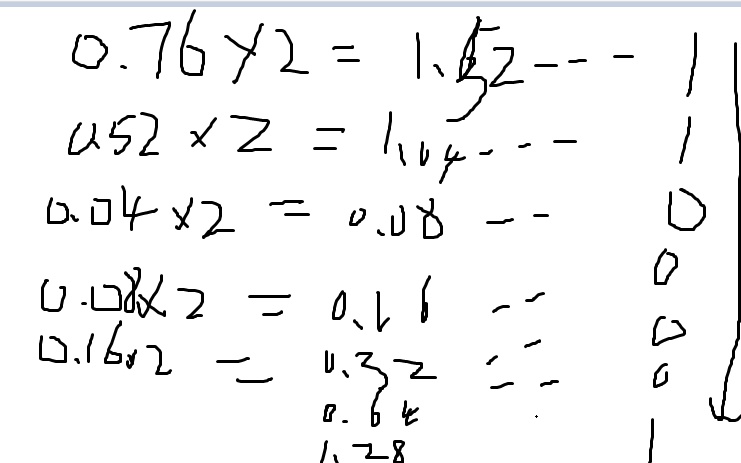 0.76×2 = 1.52 --- 1
0.52 × 2 = 1.04 --- 1
0.04×2 = 0.08 -- 0
0.08×2 = 0.16 -- 0
0.16×2 = 0.32 -- 0
0.64 -- 0
1.28 1